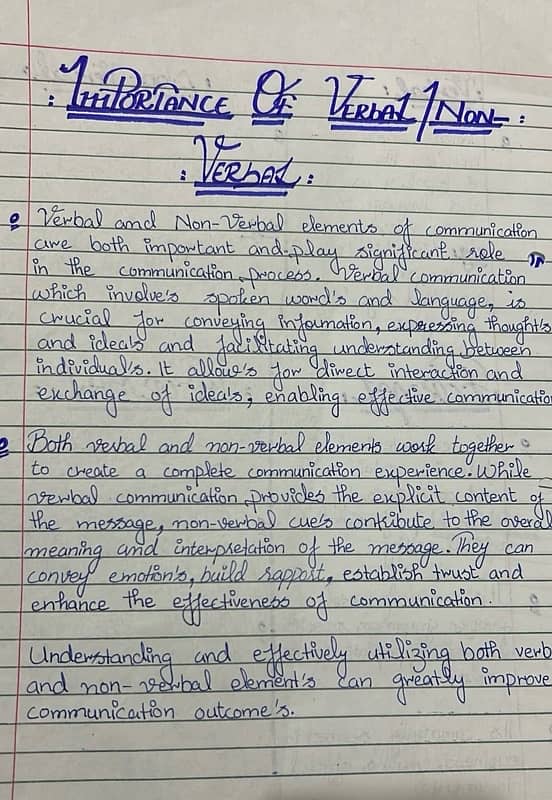 : IMPORTANCE OF VERBAL / NON- :
: VERBAL :
Verbal and Non-Verbal elements of communication
are both important and play significant role
in the communication process. Verbal communication
which involve's spoken word's and language, is
crucial for conveying information, expressing thought's
and idea's and facilitating understanding between
individual's. It allow's for direct interaction and
exchange of idea's, enabling effective communicatio
Both verbal and non-verbal elements work together
to create a complete communication experience. While
verbal communication provides the explicit content of
the message, non-verbal cue's contribute to the overal
meaning and interpretation of the message. They can
convey emotion's, build rapport, establish trust and
enhance the effectiveness of communication.
Understanding and effectively utilizing both verb
and non-verbal element's can greatly improve
communication outcome's.